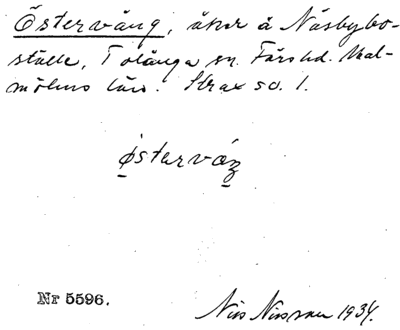 Östervång, åker å Näsbybo-
ställe, Tolånga sn. Färs hd. Mal-
möhus län. Strax so. 1.
östervåŋ
Nr 5596.
Nils Nilsson 1934.